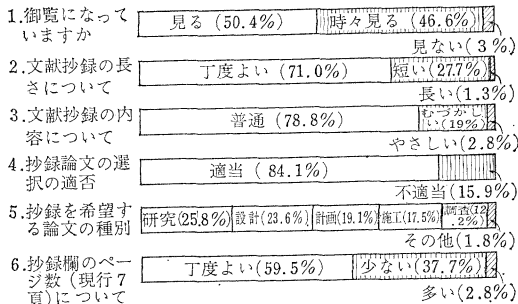 1.御覧になって
いますか
見る(50.4%)
時々見る(46.6%)
見ない(3%)
2.文献抄録の長
さについて
丁度よい(71.0%)
短い(27.7%)
長い(1.3%)
3.文献抄録の内
容について
普通(78.8%)
むづかし
い(19%)
やさしい(2.8%)
4.抄録論文の選
択の適否
適当(84.1%)
不適当(15.9%)
5.抄録を希望す
る論文の種別
研究(25.8%)
設計(23.6%)
計画(19.1%)
施工(17.5%)
調査(12
.2%)
その他(1.8%)
6.抄録欄のペー
ジ数(現行7
頁)について
丁度よい(59.5%)
少ない(37.7%)
多い(2.8%)